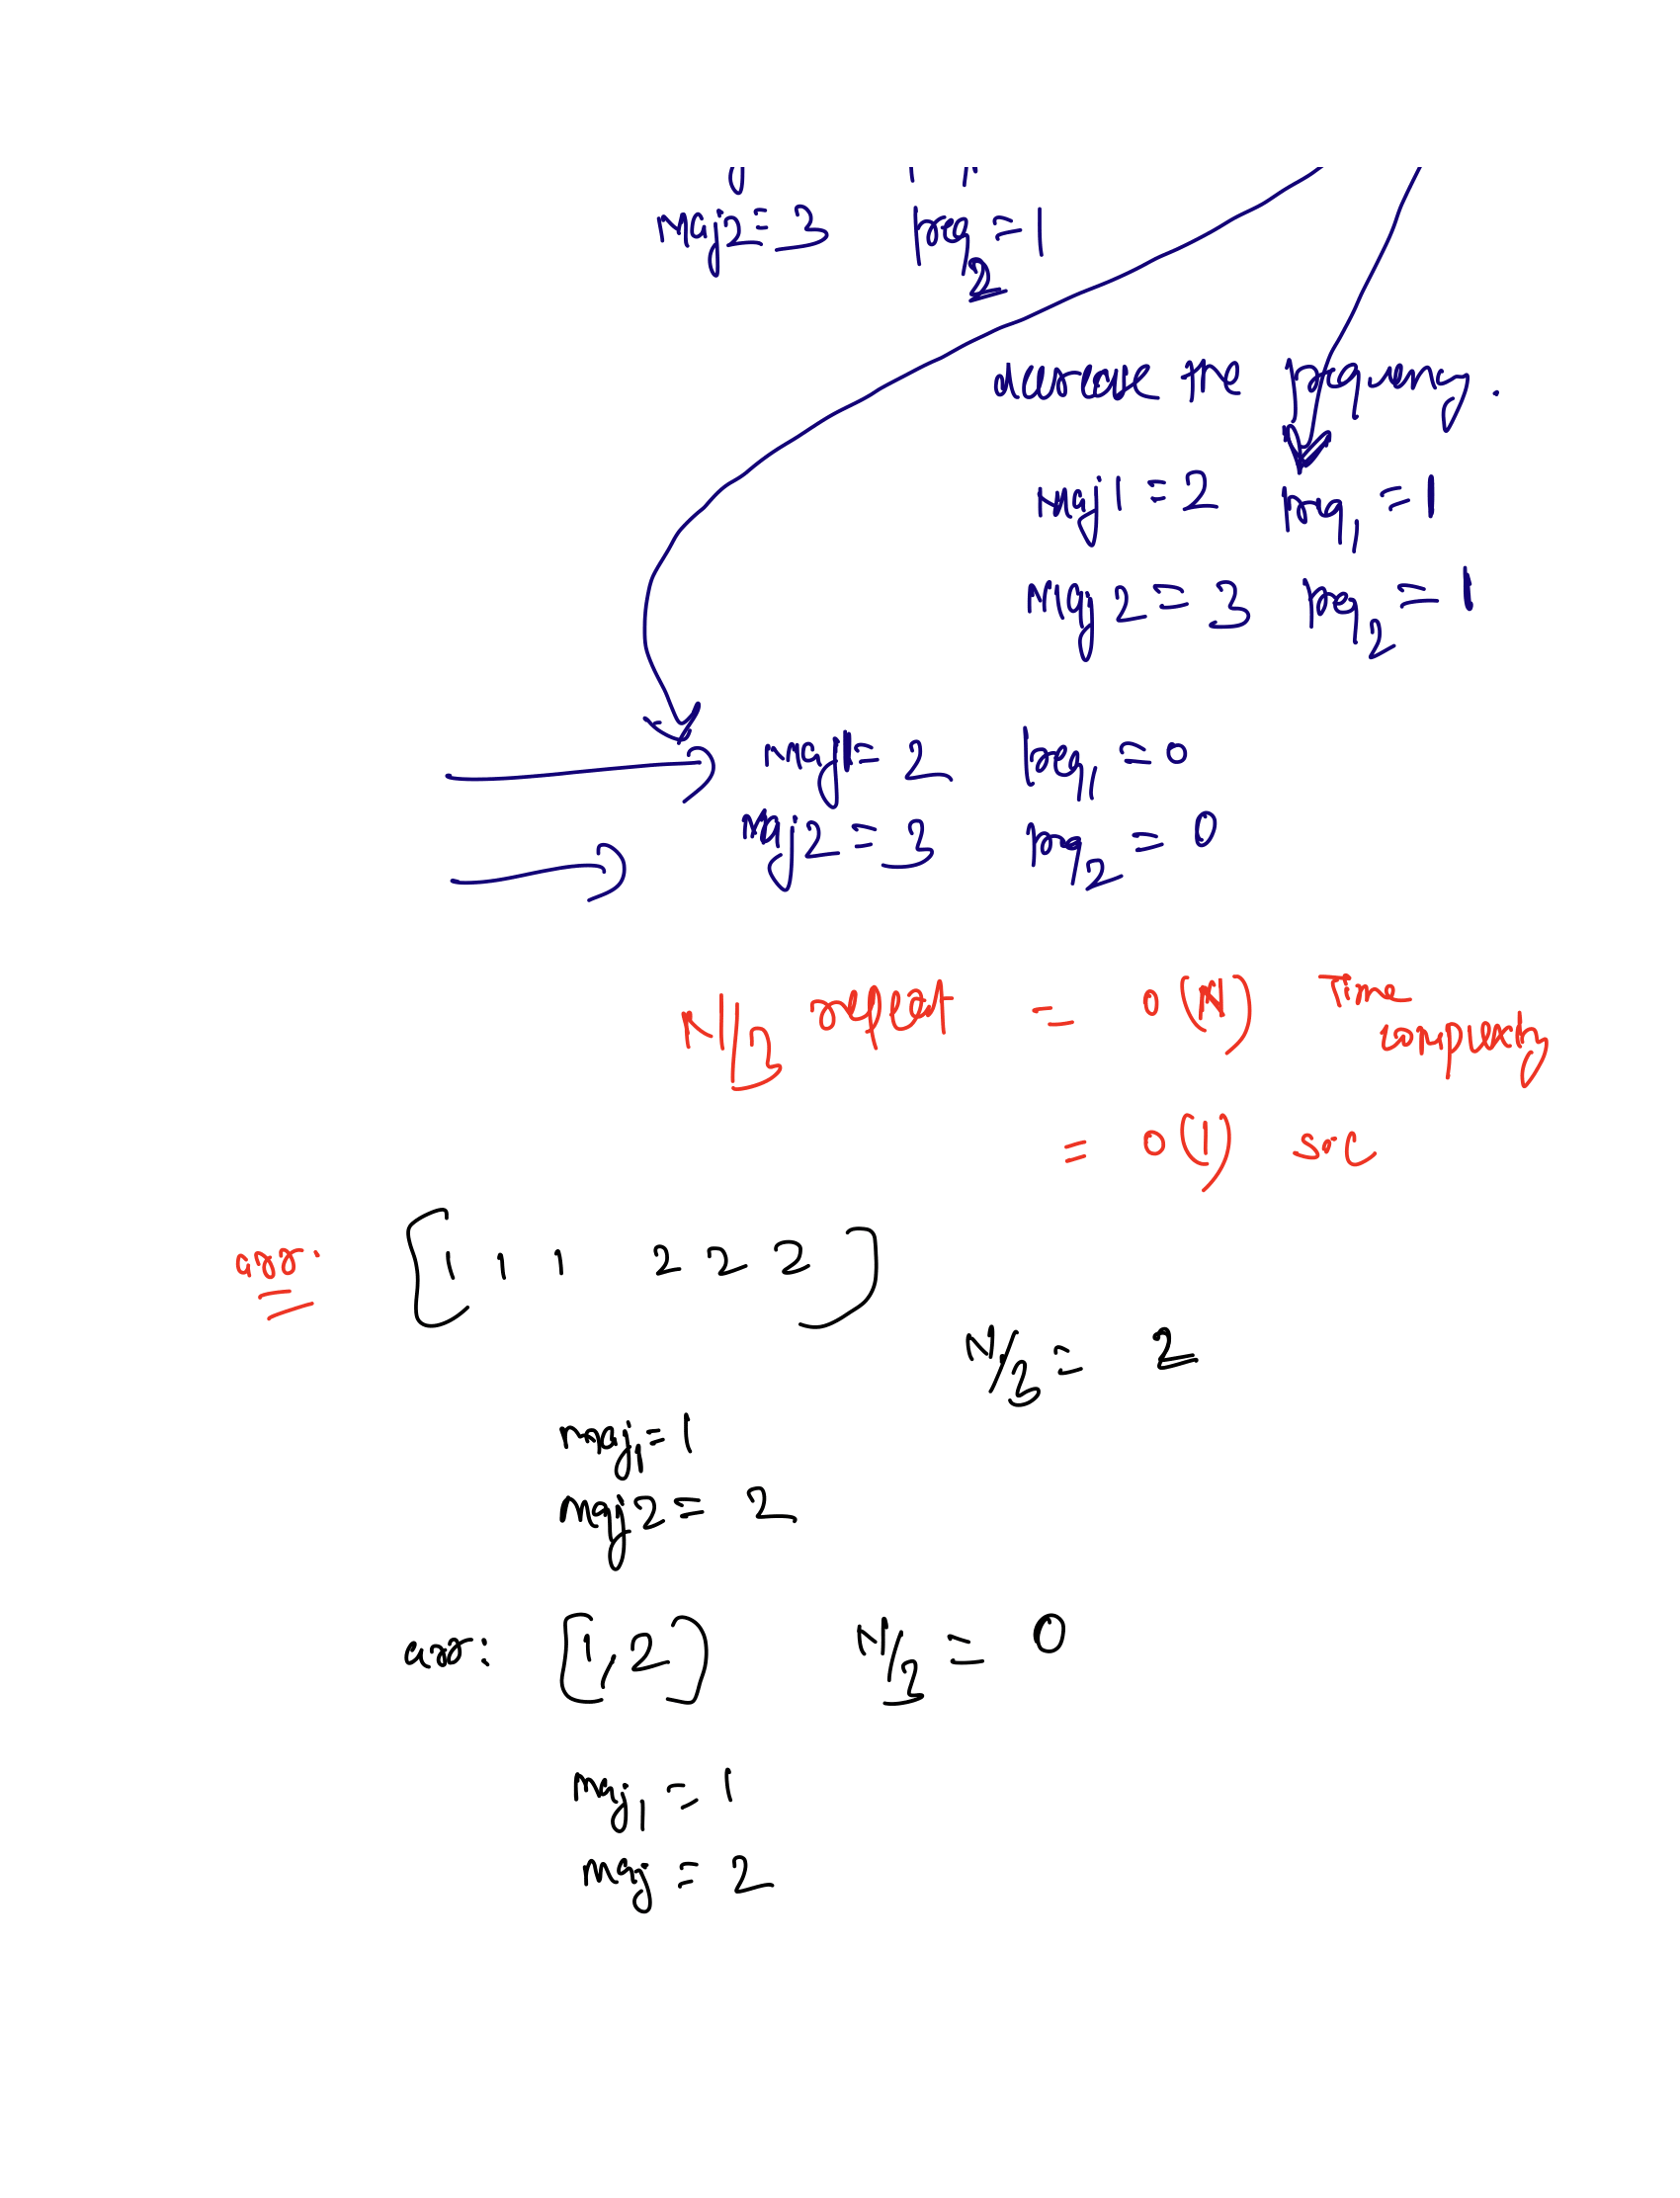 maj2 = 3 freq2 = 1
decrease the frequency.
maj1 = 2 freq1 = 1
maj2 = 3 freq2 = 1
maj1 = 2 freq1 = 0
maj2 = 3 freq2 = 0
N/3 repeat = O(N) Time complexity
= O(1) S.C
arr: [1 1 1 2 2 2]
N/3 = 2
maj1 = 1
maj2 = 2
arr: [1, 2] N/3 = 0
maj1 = 1
maj = 2